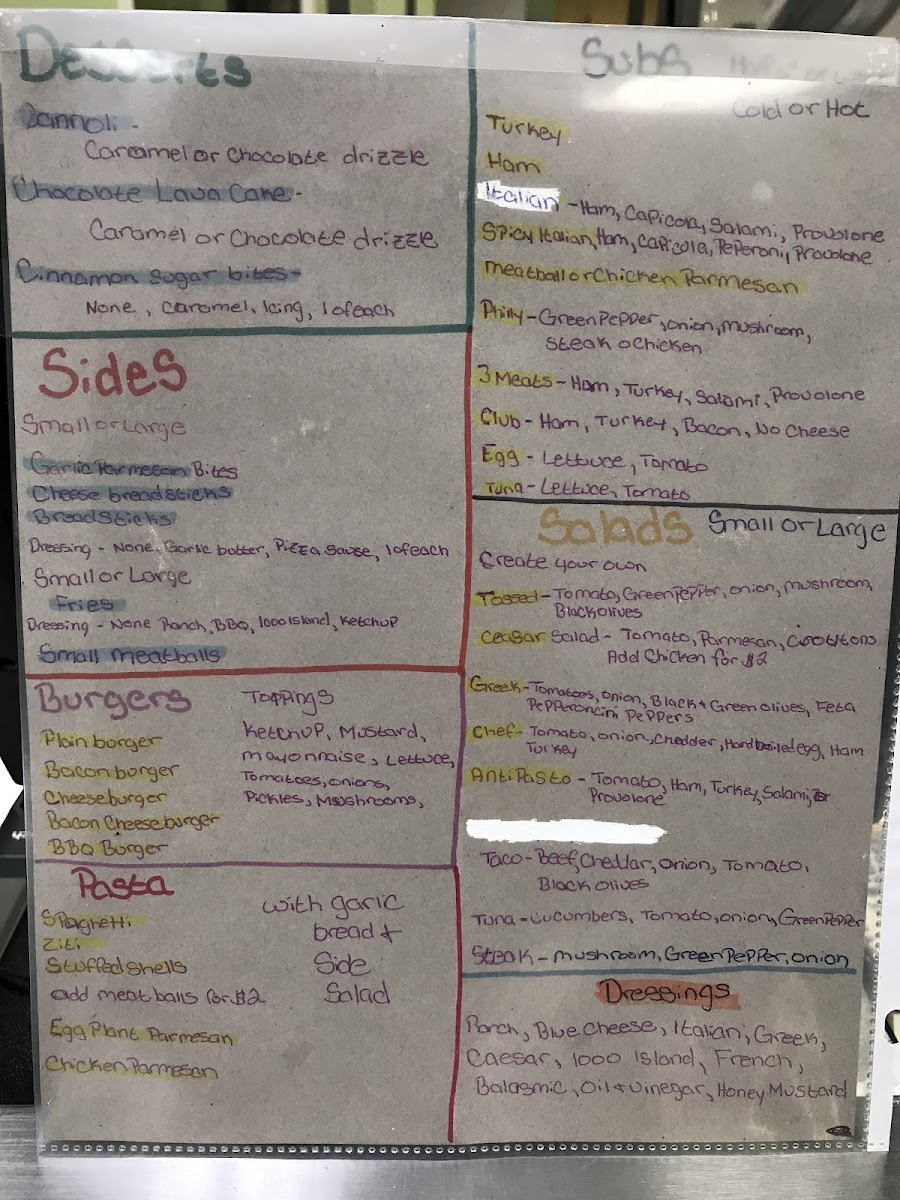 Desserts
Cannoli -
Caramel or Chocolate drizzle
Chocolate Lava Cake -
Caramel or Chocolate drizzle
Cinnamon sugar bites -
None, Caramel, Icing, 1 of each
Sides
Small or Large
Garlic Parmesan Bites
Cheese breadsticks
Breadsticks
Dressing - None, Garlic butter, Pizza Sauce, 1 of each
Small or Large
Fries
Dressing - None Ranch, BBQ, 1000 Island, Ketchup
Small meatballs
Burgers
Toppings
Plain burger
Bacon burger
Cheeseburger
Bacon Cheeseburger
BBQ Burger
Ketchup, Mustard,
mayonnaise, Lettuce,
Tomatoes, onions,
Pickles, Mushrooms,
Pasta
Spaghetti
Ziti
Stuffed Shells
add meatballs for $2
Egg Plant Parmesan
Chicken Parmesan
with garic
bread +
Side
Salad
Subs
Cold or Hot
Turkey
Ham
Italian - Ham, Capicola, Salami, Provolone
Spicy Italian, Ham, Capicola, Peperoni, Provolone
meatball or Chicken Parmesan
Philly - Green Pepper, onion, mushroom,
Steak o Chicken
3 Meats - Ham, Turkey, Salami, Provolone
Club - Ham, Turkey, Bacon, No Cheese
Egg - Lettuce, Tomato
Tuna - Lettuce, Tomato
Salads Small or Large
Create your own
Tossed - Tomato, Green Pepper, onion, mushroom,
Black olives
Ceasar Salad - Tomato, Parmesan,
Add Chicken for $2
Greek - Tomatoes, onion, Black + Green olives, Feta
Pepperoncini Peppers
Chef - Tomato, onion, Chedder, Hard boiled egg, Ham
Turkey
AntiPasto - Tomato, Ham, Turkey, Salami,
Provolone
Taco - Beef, Cheddar, onion, Tomato,
Black olives
Tuna - Cucumbers, Tomato, onion, Green Pepper
Steak - mushroom, Green Pepper, onion
Dressings
Ranch, Blue Cheese, Italian, Greek,
Caesar, 1000 Island, French,
Balasmic, Oil + Vinegar, Honey Mustard